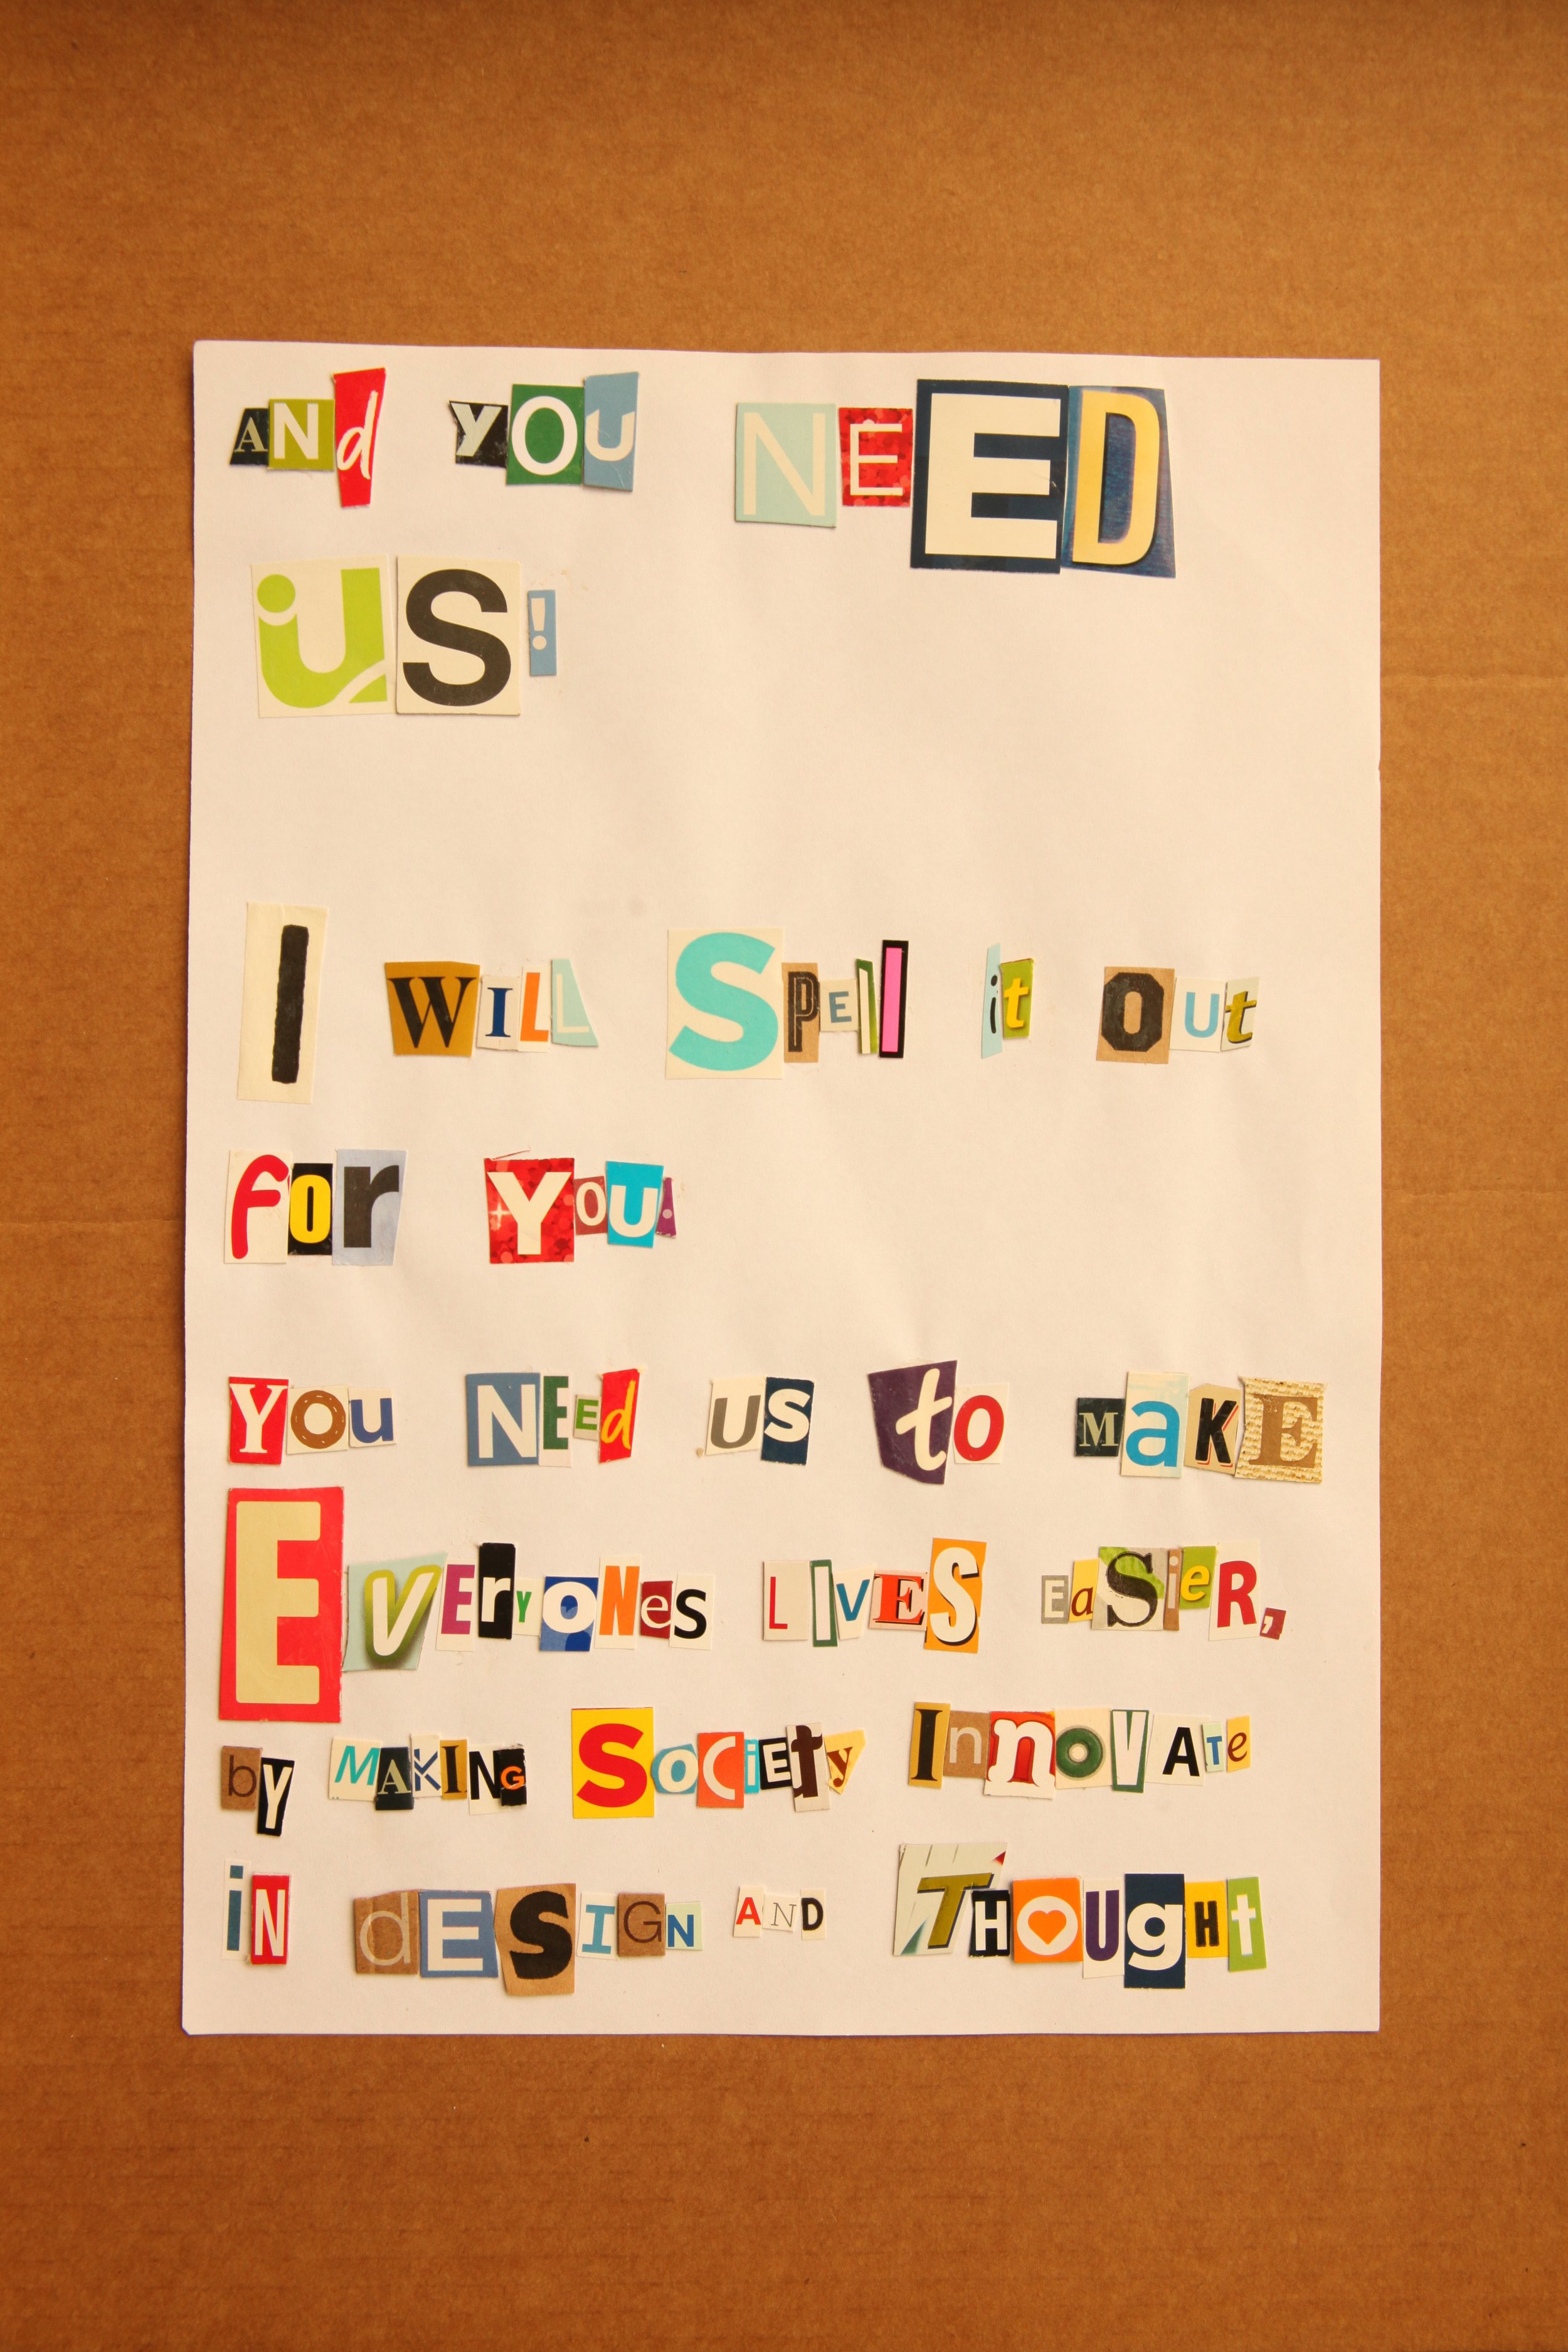 ANd yOU NEED
US!
I WILL SPEll it OUt
for YOU!
YOu NEEd US to MaKE
EVEryoNes LIVES EaSieR,
by MAKING SoCiEty InnoVAte
iN dESIGN AND THOUgHt